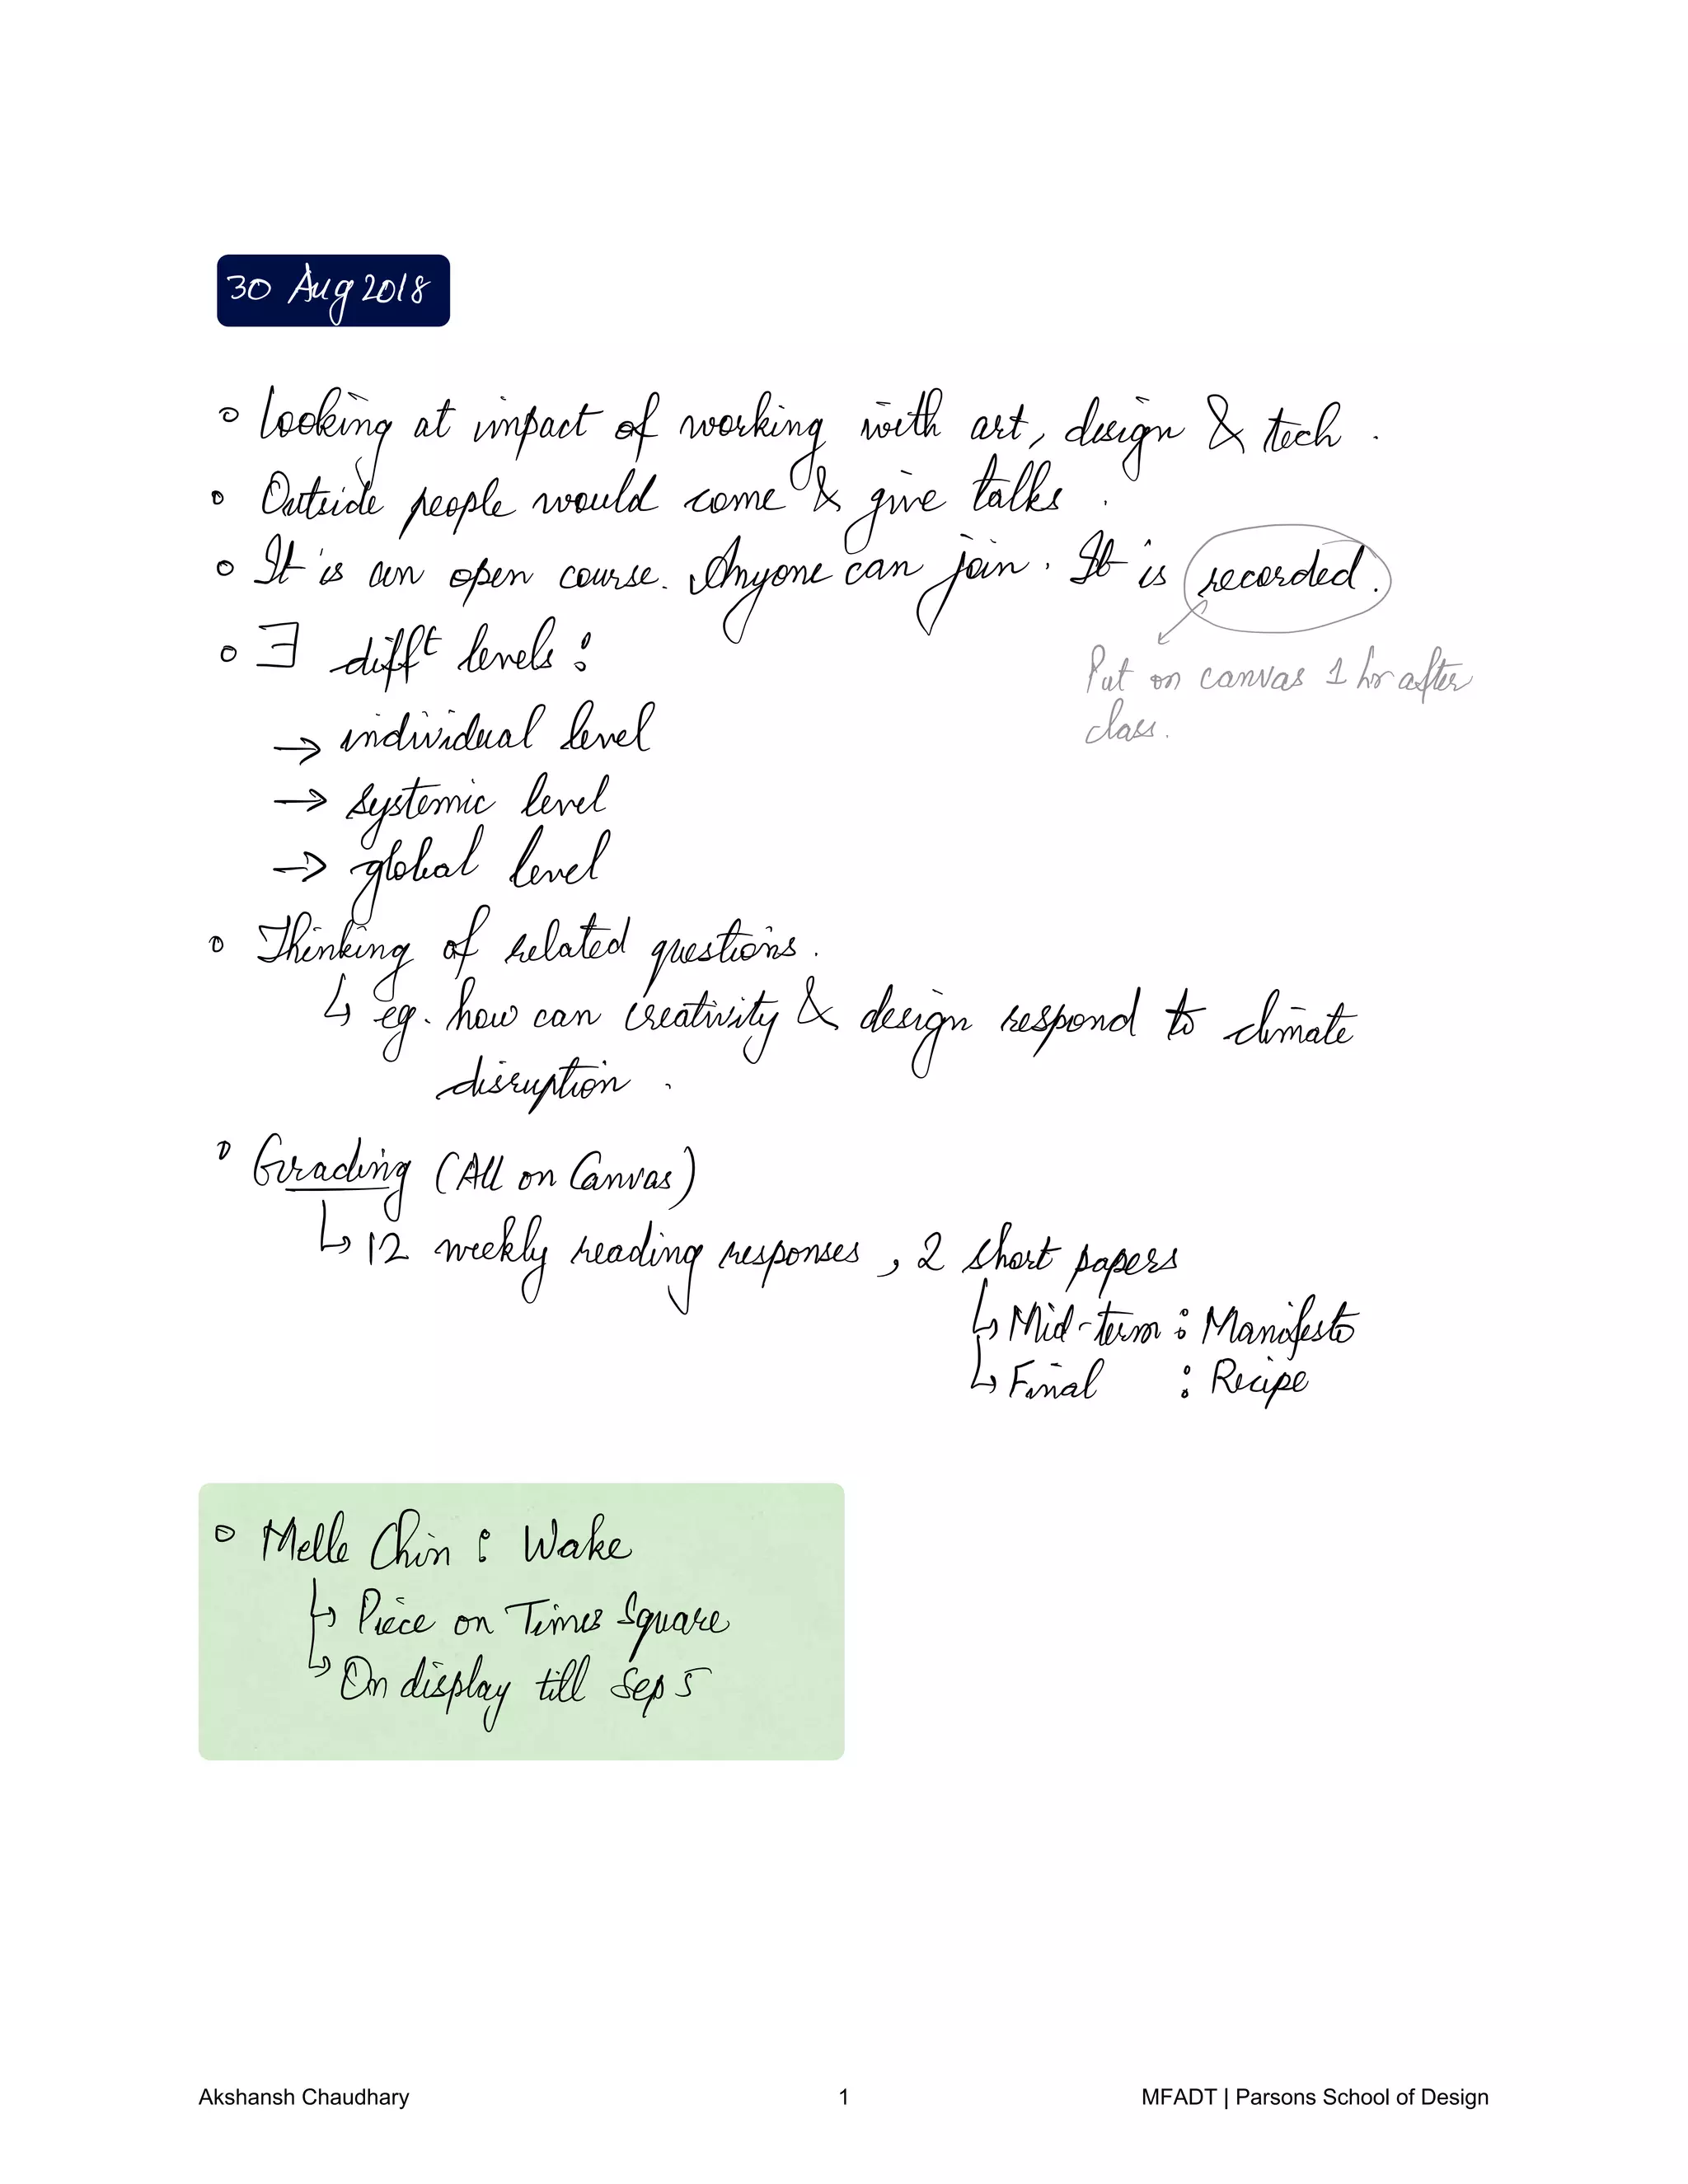 30 Aug 2018
• Looking at impact of working with art, design & tech.
• Outside people would come & give talks.
• It is an open course. Anyone can join. It is recorded.
Put on canvas 1 hr after
class.
• ∃ diff^t levels:
→ individual level
→ systemic level
→ global level
• Thinking of related questions.
↳ eg. how can creativity & design respond to climate
disruption.
• Grading (All on Canvas)
↳ 12 weekly reading responses, 2 short papers
↳ Mid-term : Manifesto
↳ Final : Recipe
• Melle Chin : Wake
↳ Piece on Times Square
↳ On display till Sep 5
Akshansh Chaudhary 1 MFADT | Parsons School of Design